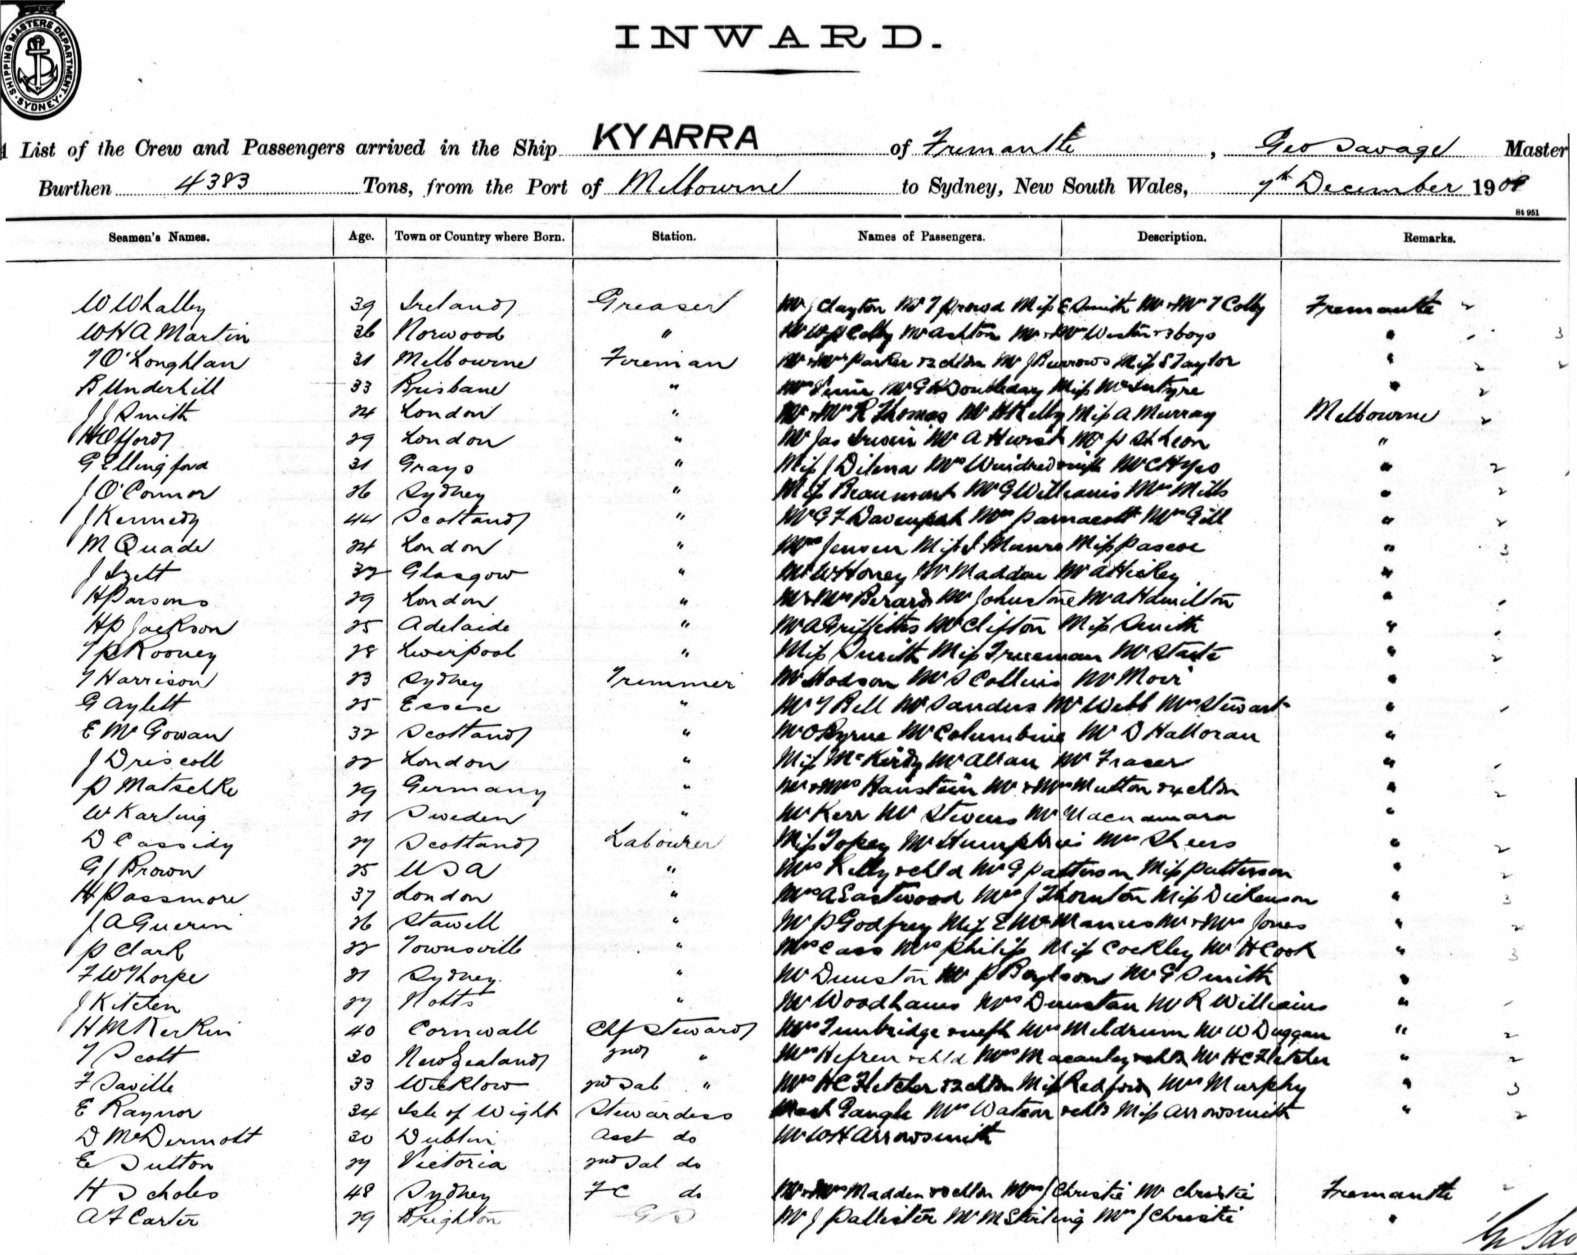 SHIPPING MASTERS DEPARTMENT SYDNEY
INWARD.
List of the Crew and Passengers arrived in the Ship KYARRA of Fremantle, Geo Savage Master
Burthen 4383 Tons, from the Port of Melbourne to Sydney, New South Wales, 7th December 1908
St 951
Seamen's Names. Age. Town or Country where Born. Station. Names of Passengers. Description. Remarks.
W Whalley 39 Ireland Greaser Mr J Clayton Mr T Prowd Miss E Smith Mr & Mrs T Colby Fremantle
W H A Martin 36 Norwood " Mr W J Colby Mr Ashton Mr & Mrs Weston & 3 boys "
T O'Loughlan 31 Melbourne Fireman Mr & Mrs Parker & 2 chldn Mr J Burrows Miss S Taylor "
B Underhill 33 Brisbane " Mr G H Doubleday Miss McIntyre "
J J Smith 24 London " Mr & Mrs R Thomas Mr H Kelly Miss A Murray Melbourne
H Offord 29 London " Mr Jas Irwin Mr A Hurst Mr St Leon "
G Ellingford 31 Grays " Miss J Dilena Mrs Mr C Hyes "
J O'Connor 26 Sydney " Miss Beaumont Mr G Williams Mrs Mills "
J Kennedy 44 Scotland " Mr G F Davenport Mrs Parnacott Mrs Gill "
M Quade 24 London " Mrs Jensen Miss I Munro Miss Pascoe "
J Izett 32 Glasgow " Mr W Honey Mr Madden Mr A Hickey "
H Parsons 29 London " Mr & Mrs Berard Mr Johnstone Mr A Hamilton "
H P Jackson 25 Adelaide " Mr A Griffiths Mr Clifton Miss Smith "
T P Rooney 28 Liverpool " Miss Smith Miss Trueman Mr State "
T Harrison 23 Sydney Trimmer Mr Hodson Mr S Collins Mr Moir "
G Aylett 25 Essex " Mr T Bell Mr Sanders Mr Webb Mrs Stewart "
E McGowan 32 Scotland " Mr O'Byrne Mr Columbine Mr D Halloran "
J Driscoll 22 London " Miss McKirdy Mr Allan Mr Fraser "
P Matschke 29 Germany " Mr & Mrs Hanstein Mr & Mrs Mutton & 4 chldn "
W Karling 21 Sweden " Mr Kerr Mr Stevens Mr Macnamara "
D Cassidy 27 Scotland Labourer Miss Topey Mr Humphries Mrs Sheers "
G J Brown 25 USA " Mrs Kelly & chld Mr G Patterson Miss Patterson "
H Passmore 37 London " Mrs A Eastwood Mrs J Thornton Miss Dickenson "
J A Guerin 26 Stawell " Mr P Godfrey Miss E McManus Mr & Mrs Jones "
P Clark 22 Townsville " Mrs Cass Mrs Philip Miss Cockley Mr H Cook "
F W Thorpe 21 Sydney " Mr Dunston Mr P Boylson Mr G Smith "
J Kitchen 27 Notts " Mr Woodhams Mrs Dunstan Mr R Williams "
H M Kerkin 40 Cornwall Chf Steward Mrs Tunbridge & neph Mrs Meldrum Mr W Duggan "
T Scott 30 New Zealand 2nd " Mrs Hefren & chld Mrs Macauley & chld Mr H C Fletcher "
F Saville 33 Wicklow 2nd Sal " Mrs H C Fletcher & 2 chldn Miss Redford Mrs Murphy "
E Raynor 34 Isle of Wight Stewardess Gangle Mrs Watson & chld Miss Arrowsmith "
D McDermott 30 Dublin Asst do Mr W H Arrowsmith
E Sutton 27 Victoria 2nd Sal do
H Scholes 48 Sydney FC do Mr & Mrs Madden & chldn Mrs J Christie Mr Christie Fremantle
A F Carter 29 Brighton GS Mr J Pallister Mr M Stirling Mrs J Christie "